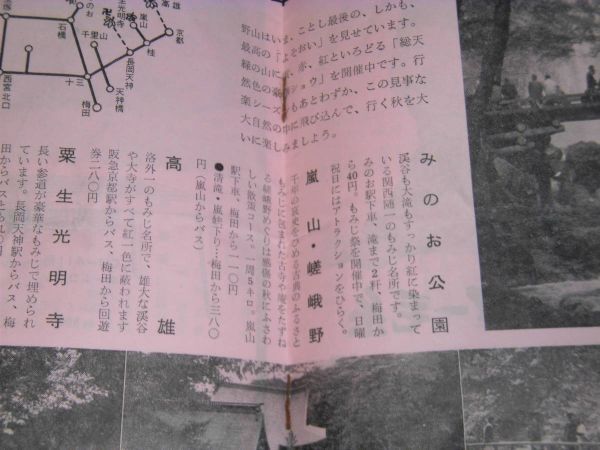 野山はいま、ことし最後の、しかも、
最高の「よそおい」を見せています。
緑の山に黄、赤、紅といろどる「総天
然色の豪華ショウ」を開催中です。行
楽シーズンもあとわずか、この見事な
大自然の中に飛び込んで、行く秋を大
いに楽しみましょう。
みのお公園
渓谷も大滝もすっかり紅に染まって
いる関西随一のもみじ名所です。
みのお駅下車、滝まで2粁、梅田か
ら40円。もみじ祭を開催中で、日曜
祝日にはアトラクションをひらく。
嵐山・嵯峨野
千年の哀史をひめる古典のふるさと
もみじに包まれた古寺や庵をたずね
る嵯峨野めぐりは感傷の秋にふさわ
しい散策コース、一周5キロ。嵐山
駅下車、梅田から一一〇円
●清滝・嵐峡下り…梅田から三八〇
円（嵐山からバス）
高雄
洛外一のもみじ名所で、雄大な渓谷
や大寺がすべて紅一色に蔽われます
阪急京都駅からバス、梅田から回遊
券二八〇円
粟生光明寺
長い参道が豪華なもみじで埋められ
ています。長岡天神駅からバス、梅
田からバスとも
高雄
嵐山
光明寺
京都
桂
長岡天神
千里山
石橋
十三
天神橋
梅田
西宮北口